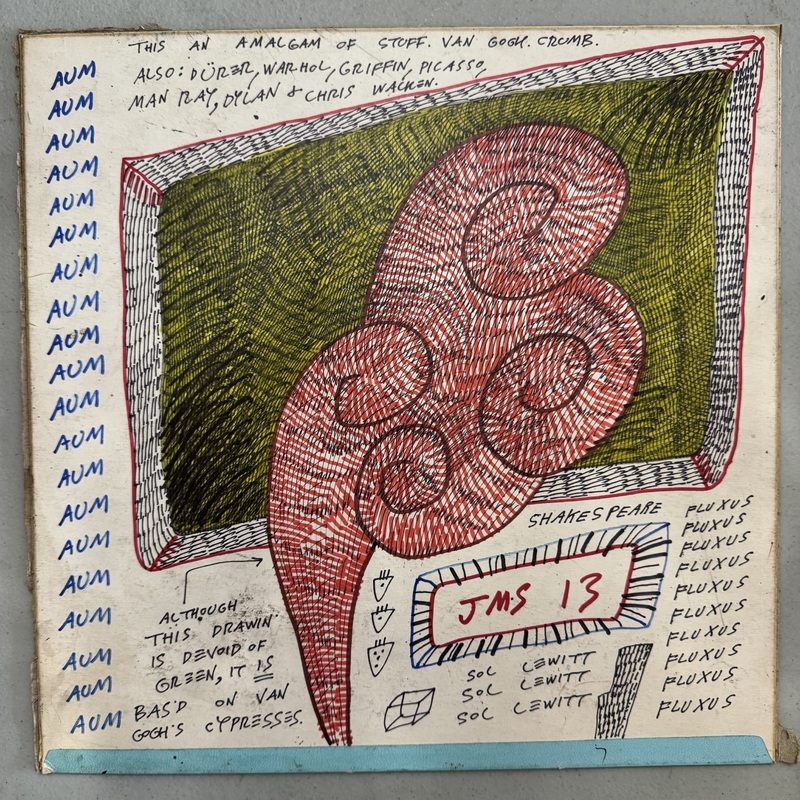 THIS AN AMALGAM OF STUFF. VAN GOGH. CRUMB.
ALSO: DÜRER, WARHOL, GRIFFIN, PICASSO,
MAN RAY, DYLAN & CHRIS WALKEN.
AUM
AUM
AUM
AUM
AUM
AUM
AUM
AUM
AUM
AUM
AUM
AUM
AUM
AUM
AUM
AUM
AUM
AUM
AUM
AUM
ALTHOUGH
THIS DRAWIN'
IS DEVOID OF
GREEN, IT IS
BAS'D ON VAN
GOGH'S CYPRESSES.
SHAKESPEARE
JMS 13
SOL LEWITT
SOL LEWITT
SOL LEWITT
FLUXUS
FLUXUS
FLUXUS
FLUXUS
FLUXUS
FLUXUS
FLUXUS
FLUXUS
FLUXUS
FLUXUS